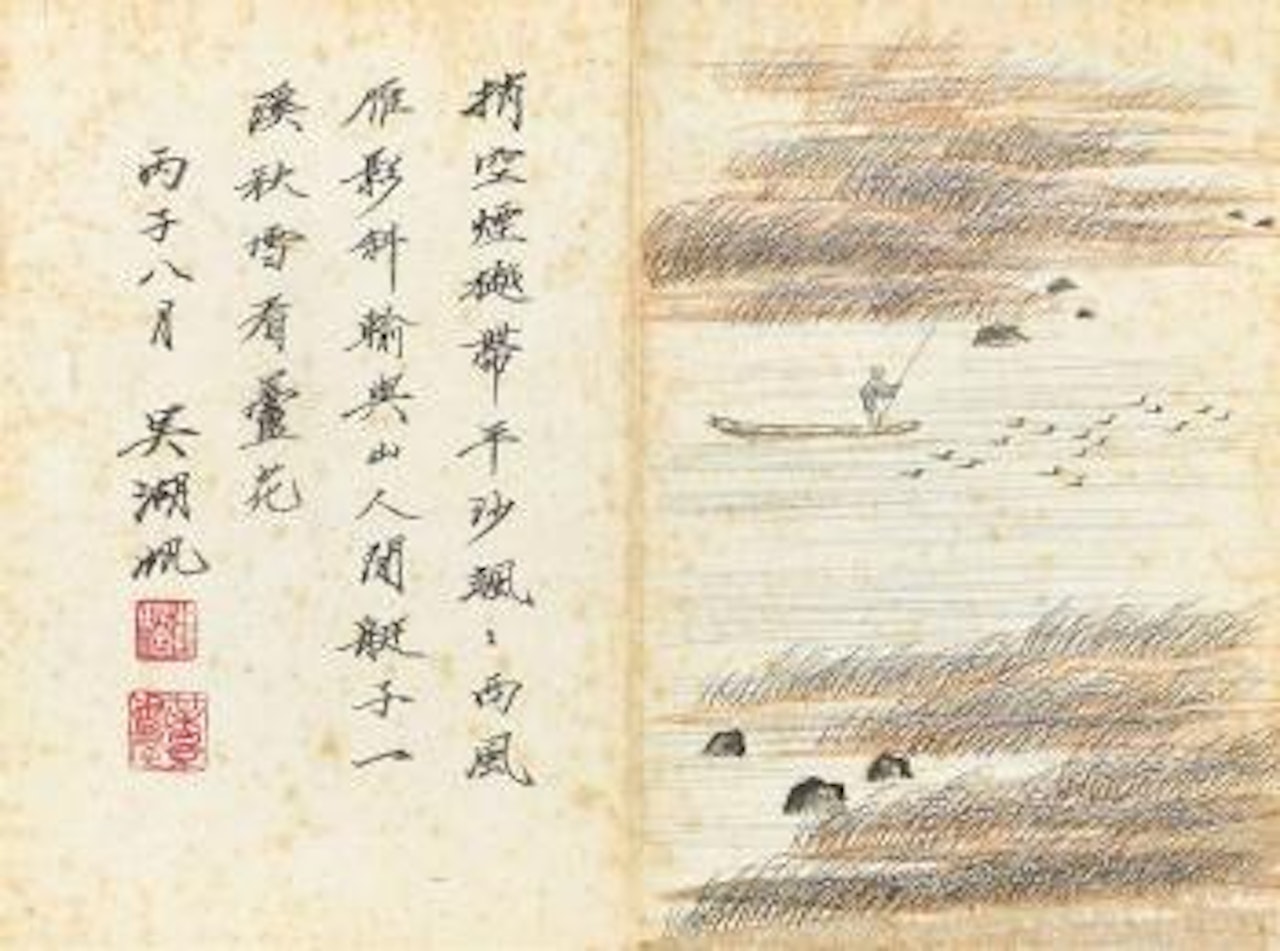 捎空煙帶平沙颯〻西風
雁影斜輸與山人閒艇子一
溪秋雪看蘆花
丙子八月 吴湖帆